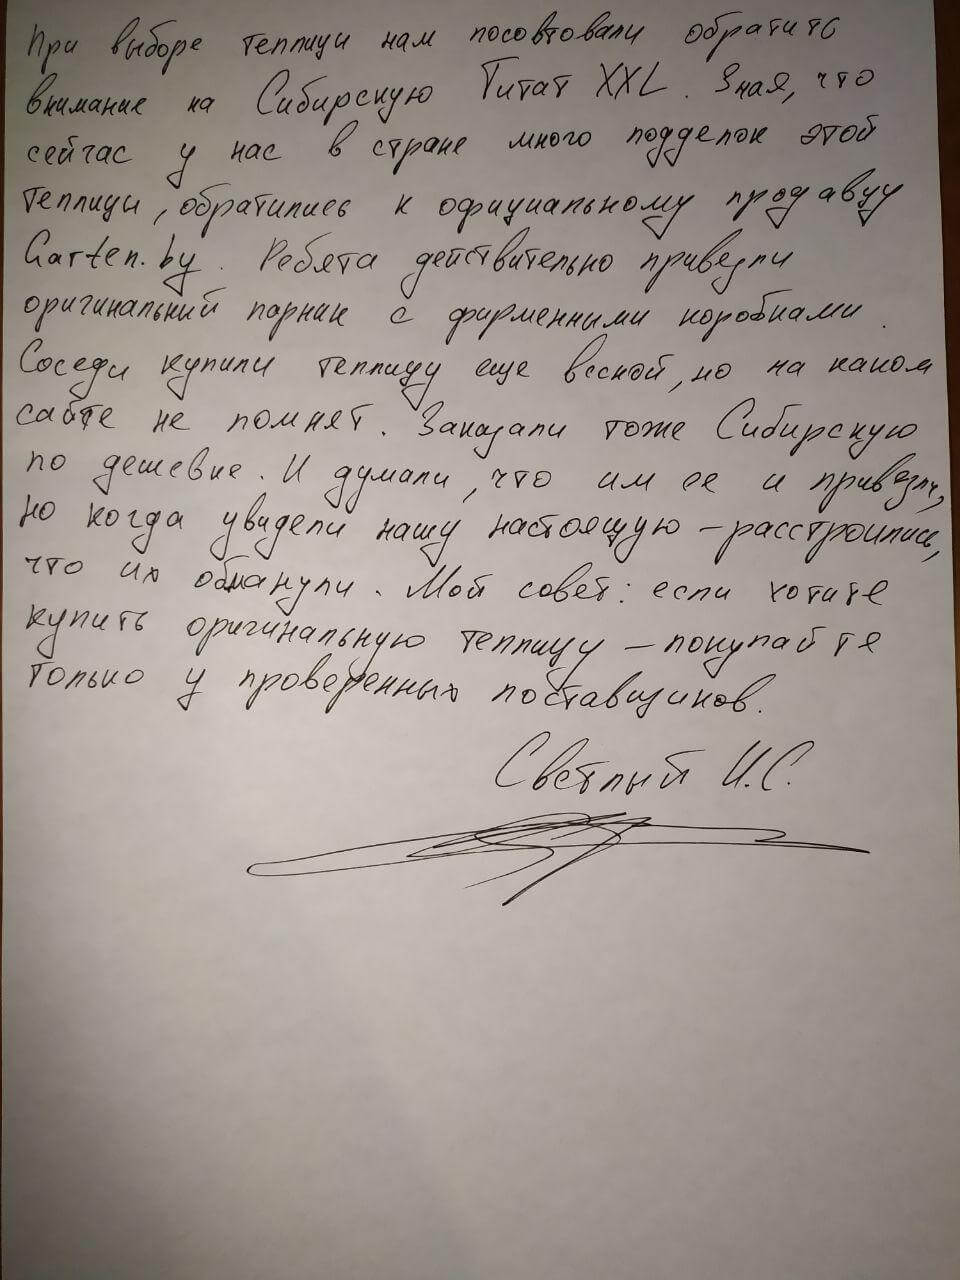 При выборе теплицы нам посовтовали обратить
внимание на Сибирскую Титат XXL. Зная, что
сейчас у нас в стране много подделок этой
теплицы, обратились к официальному продавцу
Garten.by. Ребята действительно привезли
оригинальний парник с фирменными коробками.
Соседи купили теплицу еще весной, но на каком
сайте не помнят. Заказали тоже Сибирскую
по дешевле. И думали, что им ее и привезли,
но когда увидели нашу настоящую – расстроились,
что их обманули. Мой совет: если хотите
купить оригинальную теплицу – покупайте
только у проверенных поставщиков.
Светлый И.С.